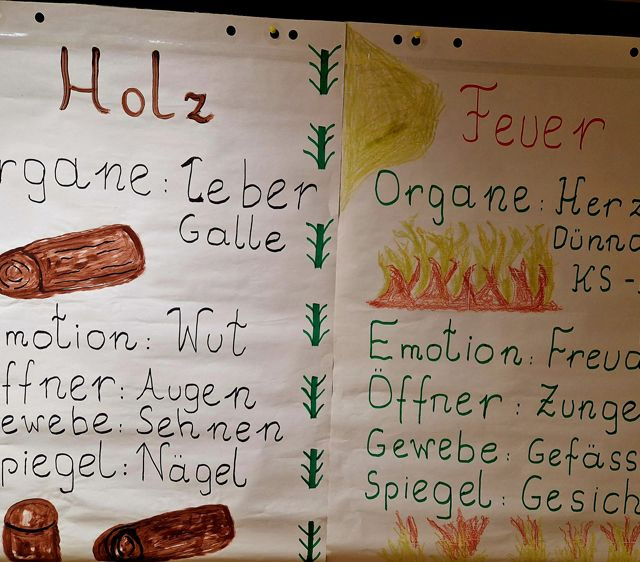 Holz
rgane: Leber
Galle
motion: Wut
ffner: Augen
ewebe: Sehnen
piegel: Nägel
Feuer
Organe: Herz
Dünnd
KS -
Emotion: Freud
Öffner: Zunge
Gewebe: Gefäss
Spiegel: Gesich